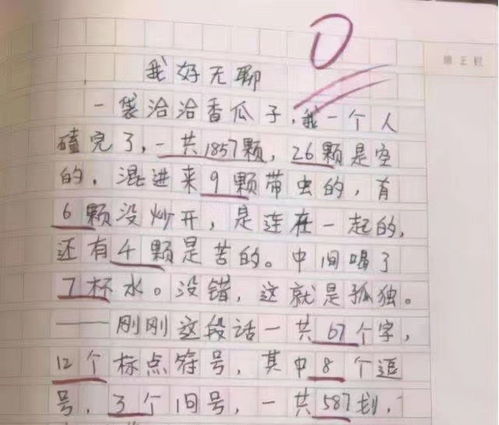 我好无聊
一袋洽洽香瓜子，我一个人
磕完了，一共1857颗，26颗是空
的，混进来9颗带虫的，有
6颗没炒开，是连在一起的，
还有4颗是苦的。中间喝了
7杯水。没错，这就是孤独。
——刚刚这段话一共67个字，
12个标点符号，其中8个逗
号，3个句号，一共587划，